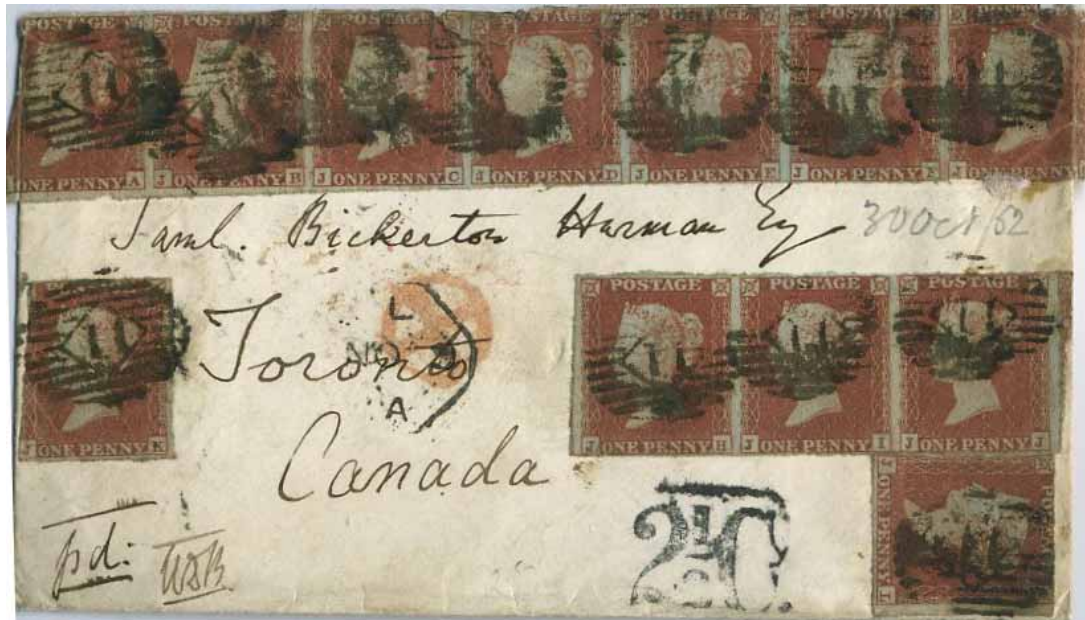 POSTAGE POSTAGE POSTAGE POSTAGE POSTAGE POSTAGE
ONE PENNY A J ONE PENNY B J ONE PENNY C ONE PENNY D J ONE PENNY E J ONE PENNY J ONE PENNY
Saml. Bickerton Harman Esq 30 Oct/52
POSTAGE POSTAGE POSTAGE POSTAGE
11 11 11 11
J ONE PENNY K J ONE PENNY H J ONE PENNY I J ONE PENNY J
L
A
Toronto
Canada
pd:
2½C
ONE PENNY